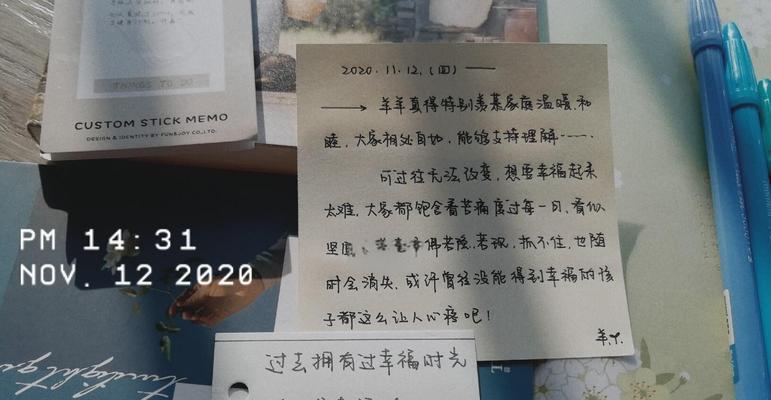 THINGS TO DO
CUSTOM STICK MEMO
DESIGN & IDENTITY BY FUNNJOY CO.,LTD.
PM 14:31
NOV. 12 2020
2020.11.12.(四)
羊羊真得特别羡慕家庭温暖.和
睦,大家相处自如,能够支持理解……
可过往无法改变,想要幸福起来
太难,大家都饱含着苦痛度过每一日,看似
坚固、幸福仿若隐.若现,抓不住,也随
时会消失,或许曾经没能得到幸福的孩
子都这么让人心疼吧!
羊.丫.
过去拥有过幸福时光